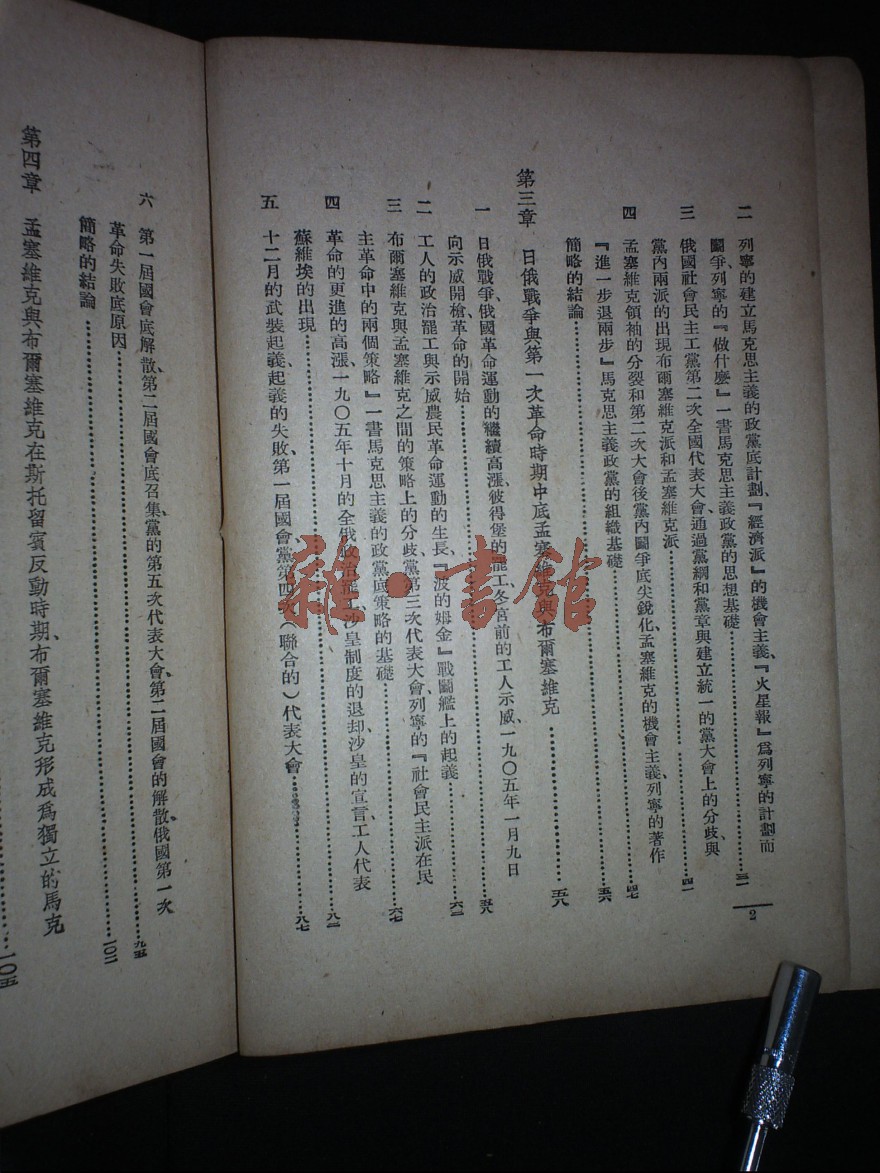 二 列寧的建立馬克思主義的政黨底計劃、『經濟派』的機會主義、『火星報』爲列寧的計劃而
鬭爭、列寧的『做什麼』一書、馬克思主義政黨的思想基礎…………三一
三 俄國社會民主工黨第二次全國代表大會、通過黨綱和黨章與建立統一的黨、大會上的分歧、與
黨內兩派的出現、布爾塞維克派和孟塞維克派…………四一
四 孟塞維克領袖的分裂和第二次大會後黨內鬭爭底尖銳化、孟塞維克的機會主義、列寧的著作
『進一步退兩步』、馬克思主義政黨的組織基礎…………四七
簡略的結論…………五六
第三章 日俄戰爭與第一次革命時期中底孟塞維克與布爾塞維克…………五八
一 日俄戰爭、俄國革命運動的繼續高漲、彼得堡的罷工、冬宮前的工人示威、一九〇五年一月九日
向示威開槍、革命的開始…………五八
二 工人的政治罷工與示威、農民革命運動的生長、『波的姆金』戰鬭艦上的起義…………六二
三 布爾塞維克與孟塞維克之間的策略上的分歧、黨第三次代表大會、列寧的『社會民主派在民
主革命中的兩個策略』一書、馬克思主義的政黨底策略的基礎…………六七
四 革命的更進的高漲、一九〇五年十月的全俄政治罷工、沙皇制度的退却、沙皇的宣言、工人代表
蘇維埃的出現…………八二
五 十二月的武裝起義、起義的失敗、第一屆國會、黨第四次(聯合的)代表大會…………八七
2
六 第一屆國會底解散、第二屆國會底召集、黨的第五次代表大會、第二屆國會的解散、俄國第一次
革命失敗底原因…………九五
簡略的結論…………一〇二
第四章 孟塞維克與布爾塞維克在斯托留賓反動時期、布爾塞維克形成爲獨立的馬克
…………一〇五
雜·書館